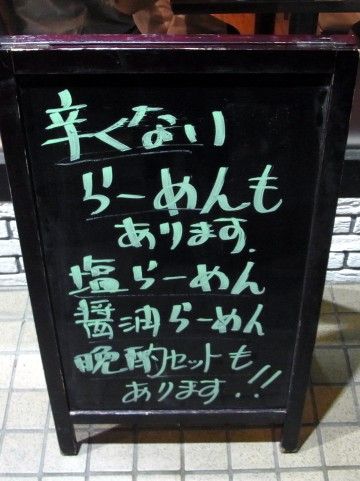 辛くない
らーめんも
あります.
塩らーめん
醤油らーめん
晩酌セットも
あります..!!